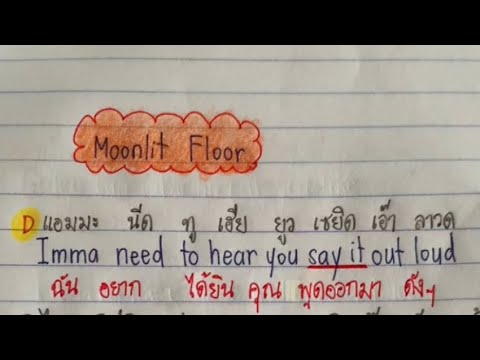 Moonlit Floor
D แอมมะ นีด ทู เฮีย ยูว เซยิด เอ๊า ลาวด
Imma need to hear you say it out loud
ฉัน อยาก ได้ยิน คุณ พูดออกมา ดังๆ